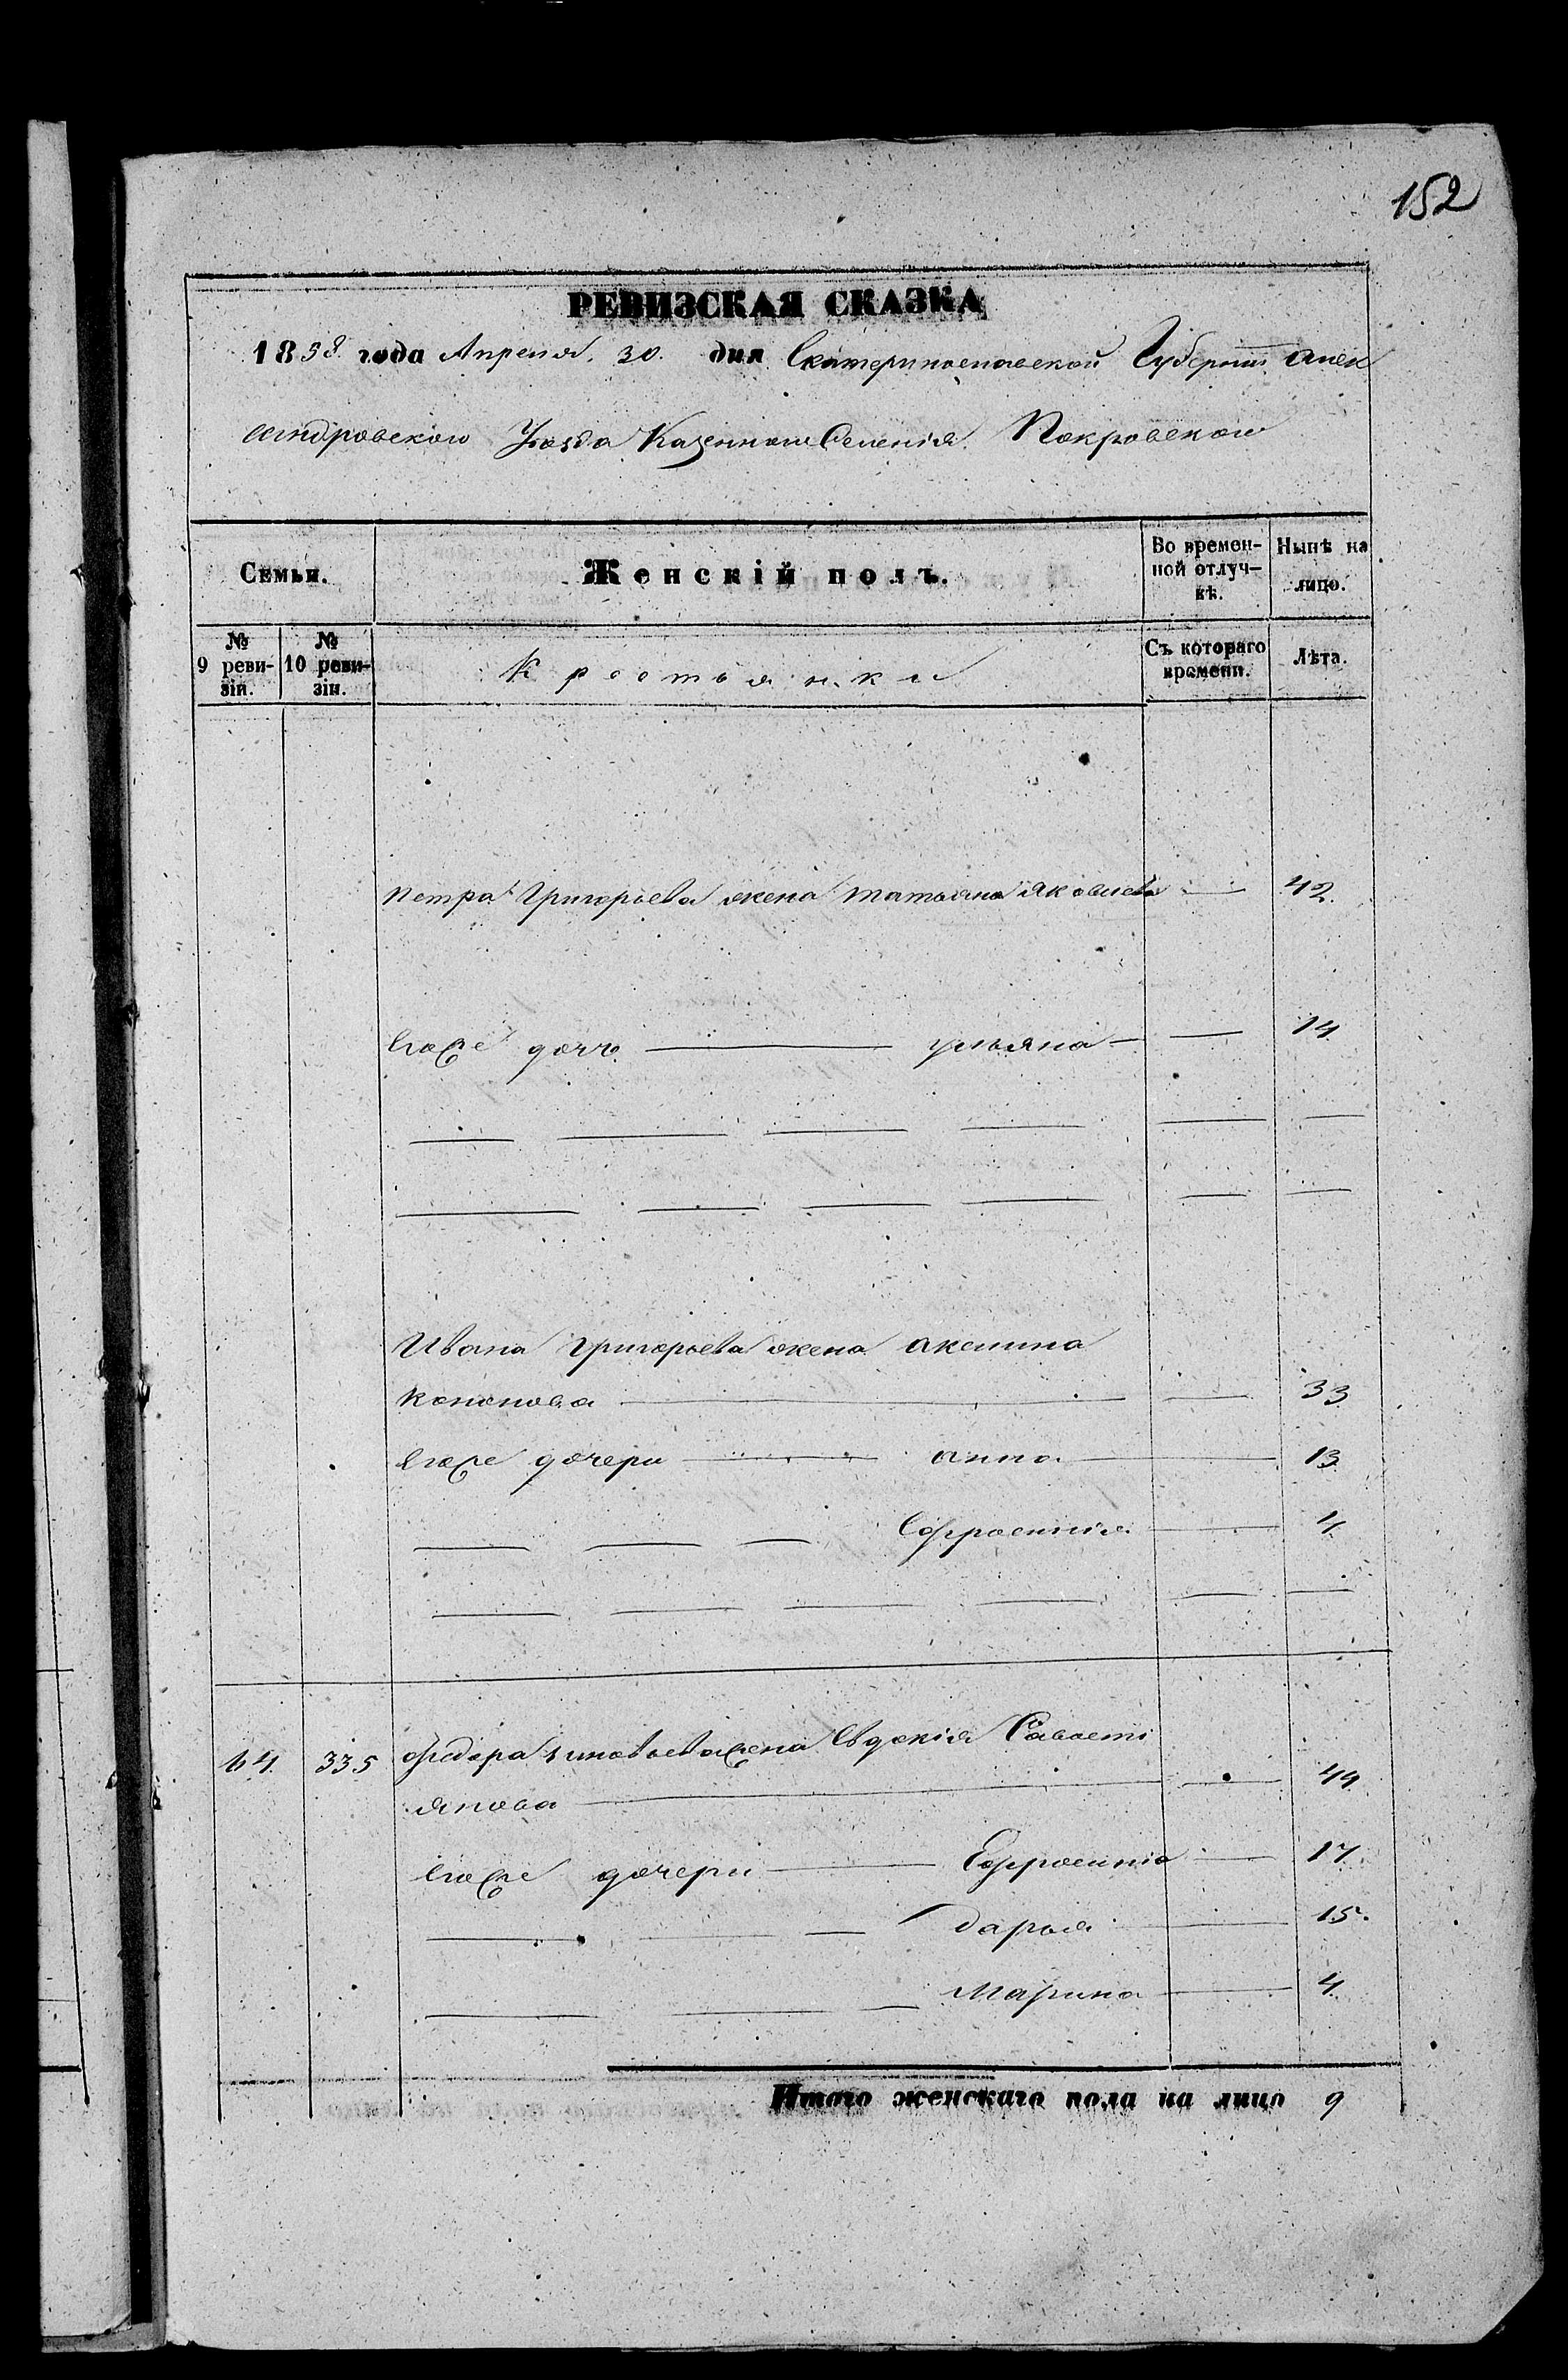 152
РЕВИЗСКАЯ СКАЗКА
1858 года Апреля 30. дня Екатеринославской Губернии Алек
сандровского Уѣзда Казенного Селенія Покровского
Семьи. Женскій полъ. Во времен- Нынѣ на
ной отлуч- лицо.
кѣ.
№ № Съ котораго Лѣта.
9 реви- 10 реви- Крестьянки времени.
зіи. зіи.
Петра Григорьева жена Татьяна Яковлева — 42.
Егоже дочь — ульяна — — 14
Ивана Григорьева жена Акелина
Кононова — — 33
Егоже дочери — анна — 13
— — — Ефросинія — 4
64. 335 Федора Зиновьева жена Евдокія Савасті
янова — — 44
Егоже дочери — Ефросинія — 17.
— — — Дарья — 15.
— — — Марина — 4.
Итого женскаго пола на лицо 9